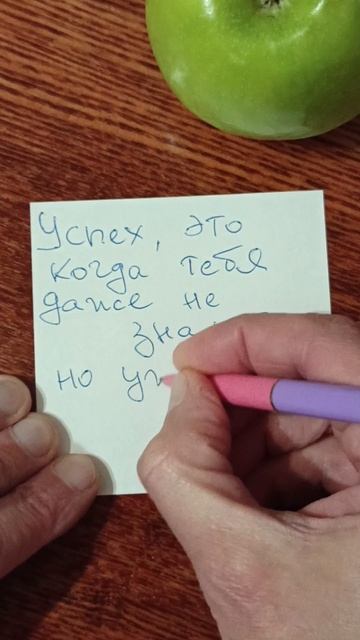 Успех, это
когда тебя
даже не
но